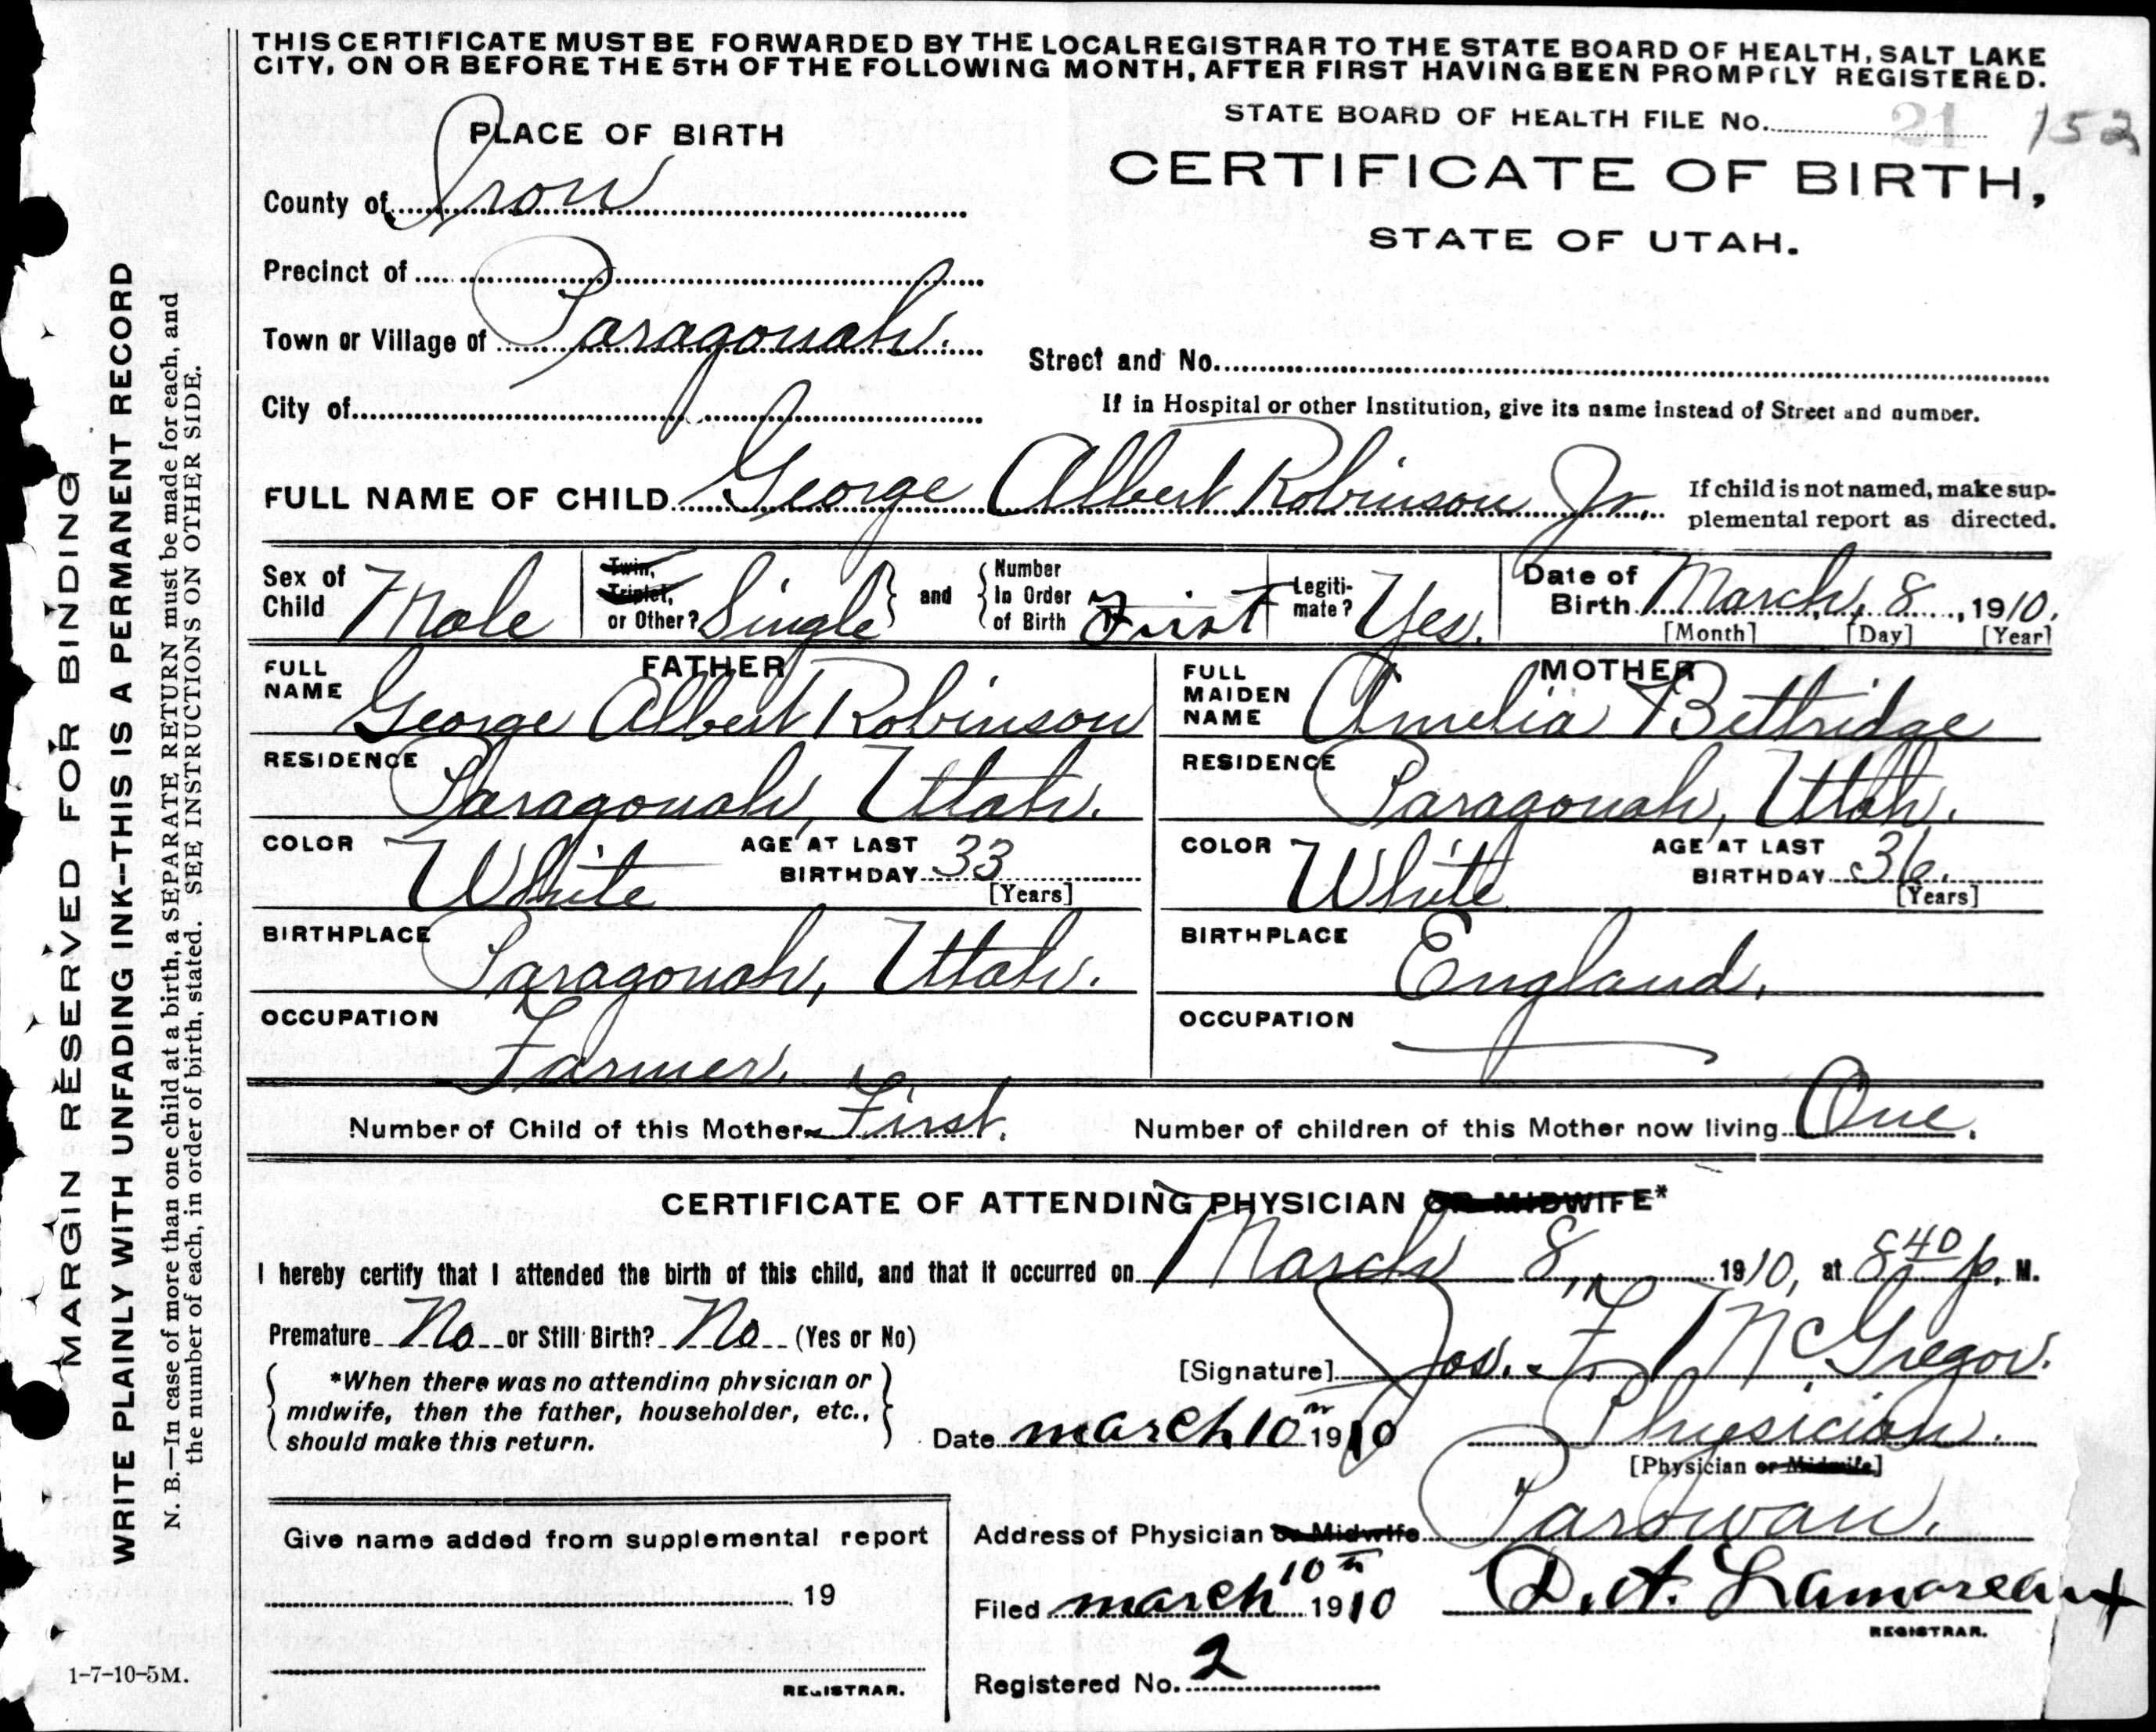 THIS CERTIFICATE MUST BE FORWARDED BY THE LOCAL REGISTRAR TO THE STATE BOARD OF HEALTH, SALT LAKE
CITY, ON OR BEFORE THE 5TH OF THE FOLLOWING MONTH, AFTER FIRST HAVING BEEN PROMPTLY REGISTERED.
STATE BOARD OF HEALTH FILE No. 21 152
PLACE OF BIRTH
CERTIFICATE OF BIRTH,
STATE OF UTAH.
County of Iron
Precinct of
Town or Village of Paragonah.
Street and No.
City of
If in Hospital or other Institution, give its name instead of Street and number.
FULL NAME OF CHILD George Albert Robinson Jr.
If child is not named, make sup-
plemental report as directed.
Sex of Child Male
Twin, Triplet, or Other? Single and Number In Order of Birth First
Legiti-mate? Yes.
Date of Birth March, 8, 1910.
[Month] [Day] [Year]
FATHER
FULL NAME George Albert Robinson
RESIDENCE Paragonah, Utah.
COLOR White AGE AT LAST BIRTHDAY 33
[Years]
BIRTHPLACE Paragonah, Utah.
OCCUPATION Farmer.
MOTHER
FULL MAIDEN NAME Amelia Bettridge
RESIDENCE Paragonah, Utah.
COLOR White AGE AT LAST BIRTHDAY 36.
[Years]
BIRTHPLACE England.
OCCUPATION
Number of Child of this Mother First.
Number of children of this Mother now living One.
CERTIFICATE OF ATTENDING PHYSICIAN OR MIDWIFE*
I hereby certify that I attended the birth of this child, and that it occurred on March 8, 1910, at 8 40 p. M.
Premature No or Still Birth? No (Yes or No)
*When there was no attending physician or
midwife, then the father, householder, etc.,
should make this return.
[Signature] Jos. F. McGregor.
Date march 10 1910
Physician.
[Physician or Midwife]
Address of Physician or Midwife Parowan.
Filed march 10th 1910 D. A. Lamoreaux
REGISTRAR.
Registered No. 2
Give name added from supplemental report
19
REGISTRAR.
1-7-10-5M.
MARGIN RESERVED FOR BINDING
WRITE PLAINLY WITH UNFADING INK--THIS IS A PERMANENT RECORD
N. B.—In case of more than one child at a birth, a SEPARATE RETURN must be made for each, and
the number of each, in order of birth, stated. SEE INSTRUCTIONS ON OTHER SIDE.